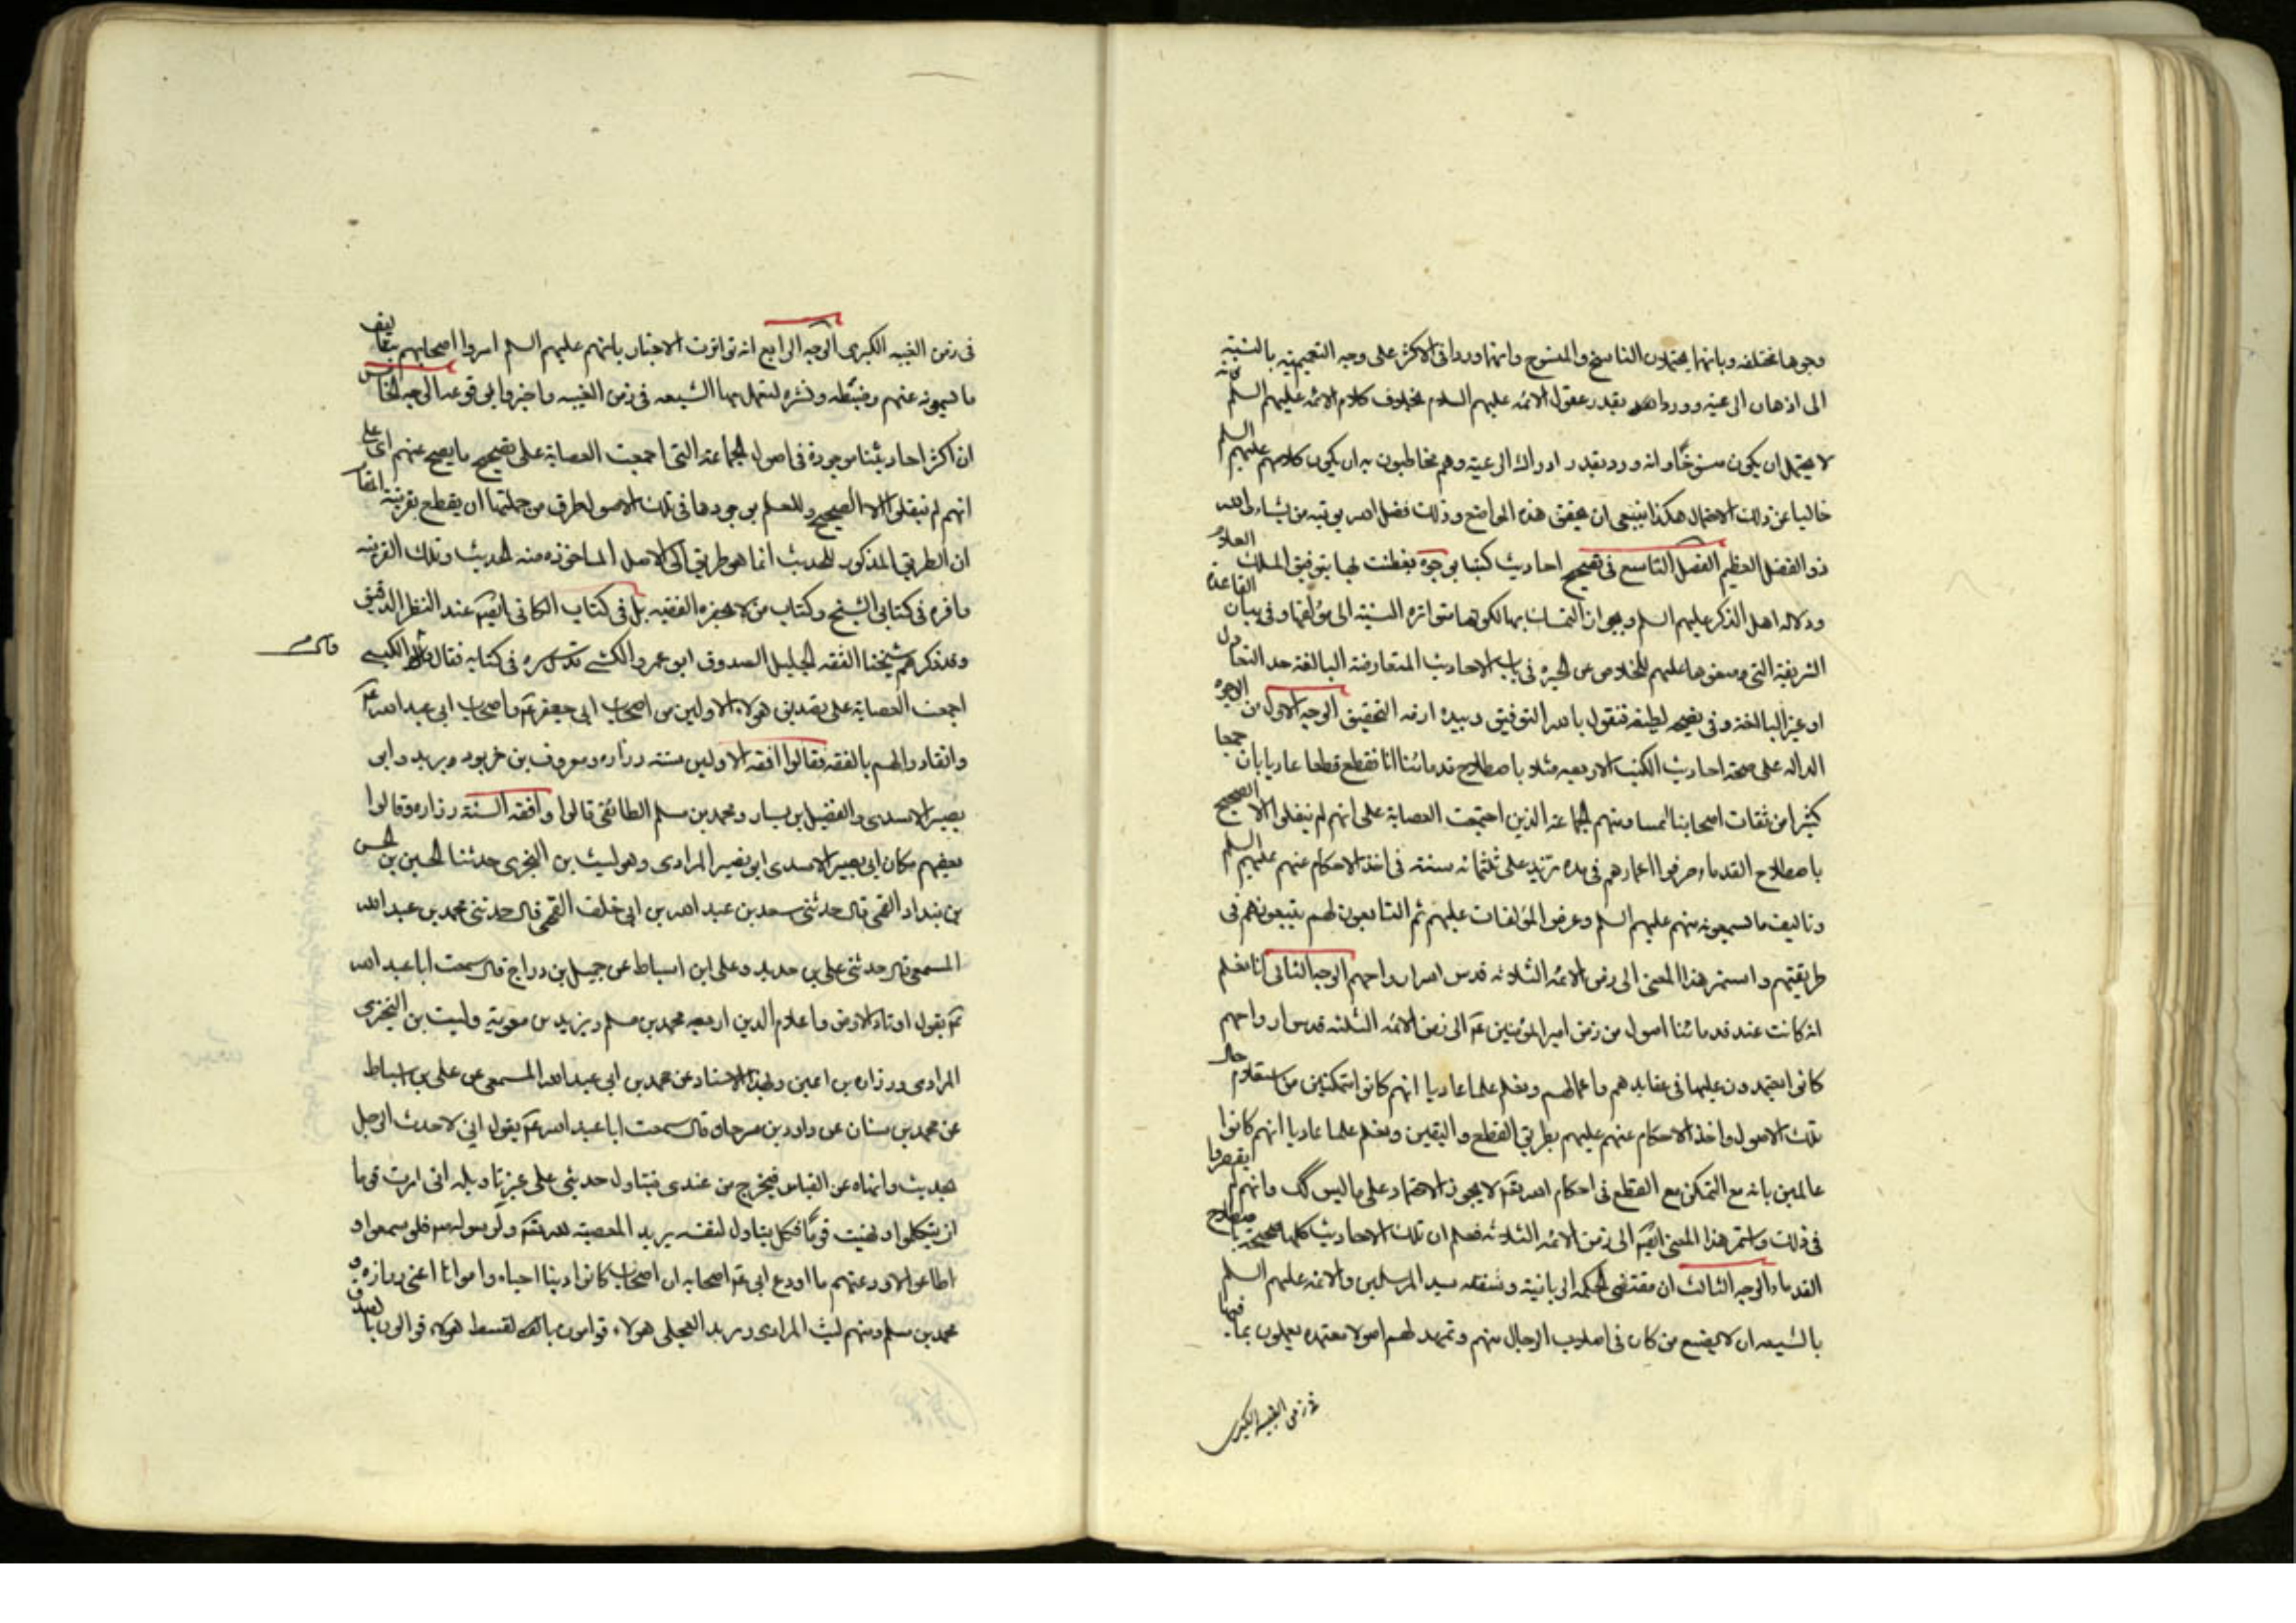 وجوها مختلفه وبانها يحتملون الناسخ والمنسوخ وانها ورد فى الاكثر على وجه التعمية بالنسبة
الى اذهان الرعية وورد بقدر عقول الائمه عليهم السلام بخلاف كلام الائمه عليهم السلم فانه
لا يحتمل ان يكون منسوخا وانه ورد بقدر ادراك الرعية وهم مخاطبون به ان يكون كلامهم عليهم السلم
خاليا عن ذلك الاحتمال هكذا ينبغى ان يحقق هذه المواضع وذلك فضل الله يوتيه من يشاء والله
ذو الفضل العظيم الفصل التاسع فى تصحيح احاديث كتبنا بوجوه تفطنت لها بتوفيق الملك العلام
ودلاله اهل الذكر عليهم السلم وبجواز التمسك بها لكونها متواتره النسبة الى مؤلفها وفى بيان القاعدة
الشريفة التى وضعوها عليهم للخلاص عن الحيرة فى باب الاحاديث المتعارضة البالغة حد التعادل
او غير البالغة وفى لطيفه فنقول بالله التوفيق وبيده ازمه التحقيق الوجه الاول من الوجوه
الداله على صحة احاديث الكتب الاربعه مثلا باصطلاح قدمائنا انا نقطع قطعا عاديا بان جمعا
كثيرا من ثقات اصحابنا ومنهم الجماعة الذين اجتمعت العصابة على انهم لم ينقلوا الا الصحيح
باصطلاح القدماء صرفوا اعمارهم فى مده تزيد على ثلثمائه سنة فى اخذ الاحكام عنهم عليهم السلم
وتاليف ما يسمعونه منهم عليهم السلم وعرض المؤلفات عليهم ثم التابعون لهم يتبعونهم فى
طريقتهم واستمر هذا المعنى الى زمن الائمه الثلاثه قدس اسرار ارواحهم الوجه الثانى انا نعلم
انه كانت عند قدمائنا اصول من زمن امير المؤمنين ع الى زمن الائمه الثلثه قدس ارواحهم
كانوا يعتمدون عليها فى عقايدهم واعمالهم ونعلم علما عاديا انهم كانوا متمكنين من استعلام حال
تلك الاصول واخذ الاحكام عنهم عليهم بطريق القطع واليقين ونعلم علما عاديا انهم كانوا
عالمين بانه مع التمكن مع القطع فى احكام الله تع لا يجوز الاعتماد على ما ليس كك وانهم لم يقصروا
فى ذلك واستمر هذا المعنى ايضا الى زمن الائمه الثلاثه فعلم ان تلك الاحاديث كلها صحيحة باصطلاح
القدماء الوجه الثالث ان مقتضى الحكمه الربانية وشفقه سيد المرسلين والائمه عليهم السلم
بالشيعه ان لا يضيع من كان فى اصلاب الرجال منهم وتمهد لهم اصولا معتمده يعملون بما فيها
فى زمن الغيبه الكبرى
فى زمن الغيبه الكبرى الوجه الرابع انه تواترت الاخبار بانهم عليهم السلم امروا اصحابهم بتاليف
ما يسمعونه عنهم وضبطه ونشره لتعمل بها الشيعه فى زمن الغيبه واخبروا بوقوعه الوجه الخامس
ان اكثر احاديثنا موجودة فى اصول الجماعة التى اجمعت العصابة على تصحيح ما يصح عنهم اى على
انهم لم ينقلوا الا الصحيح وللعلم بوجودها فى تلك الاصول طرق من جملتها ان يقطع بقرينة المقام
ان الطريق المذكور للحديث انما هو طريق الى الاصل الماخوذه منه الحديث وتلك القرينه
وافره فى كتابى الشيخ وكتاب من لا يحضره الفقيه بل فى كتاب الكافى ايضا عند النظر الدقيق
وقد ذكرهم شيخنا الثقه الجليل الصدوق ابو عمرو الكشى قدس سره فى كتابه فقال الكشى
قال
اجمعت العصابة على تصديق هولاء الاولين من اصحاب ابى جعفر ع واصحاب ابى عبد الله ع
وانقادوا لهم بالفقه فقالوا افقه الاولين ستة زراره ومعروف بن خربوذ وبريد وابى
بصير الاسدى والفضيل بن يسار ومحمد بن مسلم الطائفى قالوا وافقه الستة زراره وقالوا
بعضهم مكان ابى بصير الاسدى ابو بصير المرادى وهو ليث بن البخترى حدثنا الحسين بن الحسن
بن بنداد القمى قال حدثنى سعد بن عبد الله بن ابى خلف القمى قال حدثنى محمد بن عبد الله
المسمعى قال حدثنى على بن حديد وعلى ابن اسباط عن جميل بن دراج قال سمعت ابا عبد الله
ع يقول اوتاد الارض واعلام الدين اربعه محمد بن مسلم وبريد بن معوية وليث بن البخترى
المرادى وزراره بن اعين وبهذا الاسناد عن محمد بن ابى عبد الله المسمعى عن على بن اسباط
عن محمد بن سنان عن داود بن سرحان قال سمعت ابا عبد الله ع يقول انى لاحدث الرجل
بحديث وانهاه عن القياس فيخرج من عندى فيتاول حديثى على غير تاويله انى امرت قوما
ان يتكلموا ونهيت قوما فكل يتاول لنفسه يريد المعصية لله تع ولرسوله فلو سمعوا و
اطاعوا لاودعتهم ما اودع ابى ع اصحابه ان اصحاب كانوا زينا احياء وامواتا اعنى زراره و
محمد بن مسلم ومنهم ليث المرادى وبريد العجلى هولاء قوامون بالقسط هولاء قوالون بالصدق